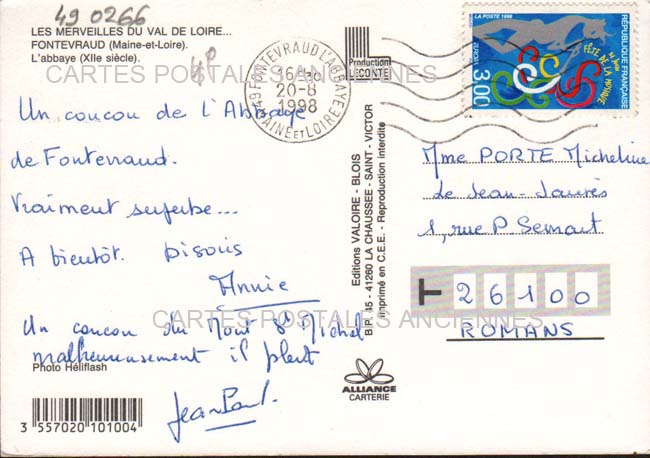 49 0266
LES MERVEILLES DU VAL DE LOIRE...
FONTEVRAUD (Maine-et-Loire).
L'abbaye (XIIe siècle).
CARTES POSTALES ANCIENNES
Un coucou de l'Abbaye
de Fontevraud.
Vraiment superbe...
A bientôt. Bisous
Annie
Un coucou du Mont St Michel
malheureusement il pleut
Jean Paul.
CARTES POSTALES ANCIENNES
Photo Héliflash
3 557020 101004
49 FONTEVRAUD L'ABBAYE
20-8
1998
MAINE et LOIRE
Production
LECONTE
Editions VALOIRE - BLOIS
B.P. 45 - 41260 LA CHAUSSEE - SAINT - VICTOR
Imprimé en C.E.E. - Reproduction interdite
ALLIANCE
CARTERIE
LA POSTE 1998
EUROPA
3,00
FÊTE DE LA MUSIQUE
21 JUIN
RÉPUBLIQUE FRANÇAISE
Mme PORTE Micheline
Le Jean-Jaurès
1, rue P. Semart
T 26100
ROMANS